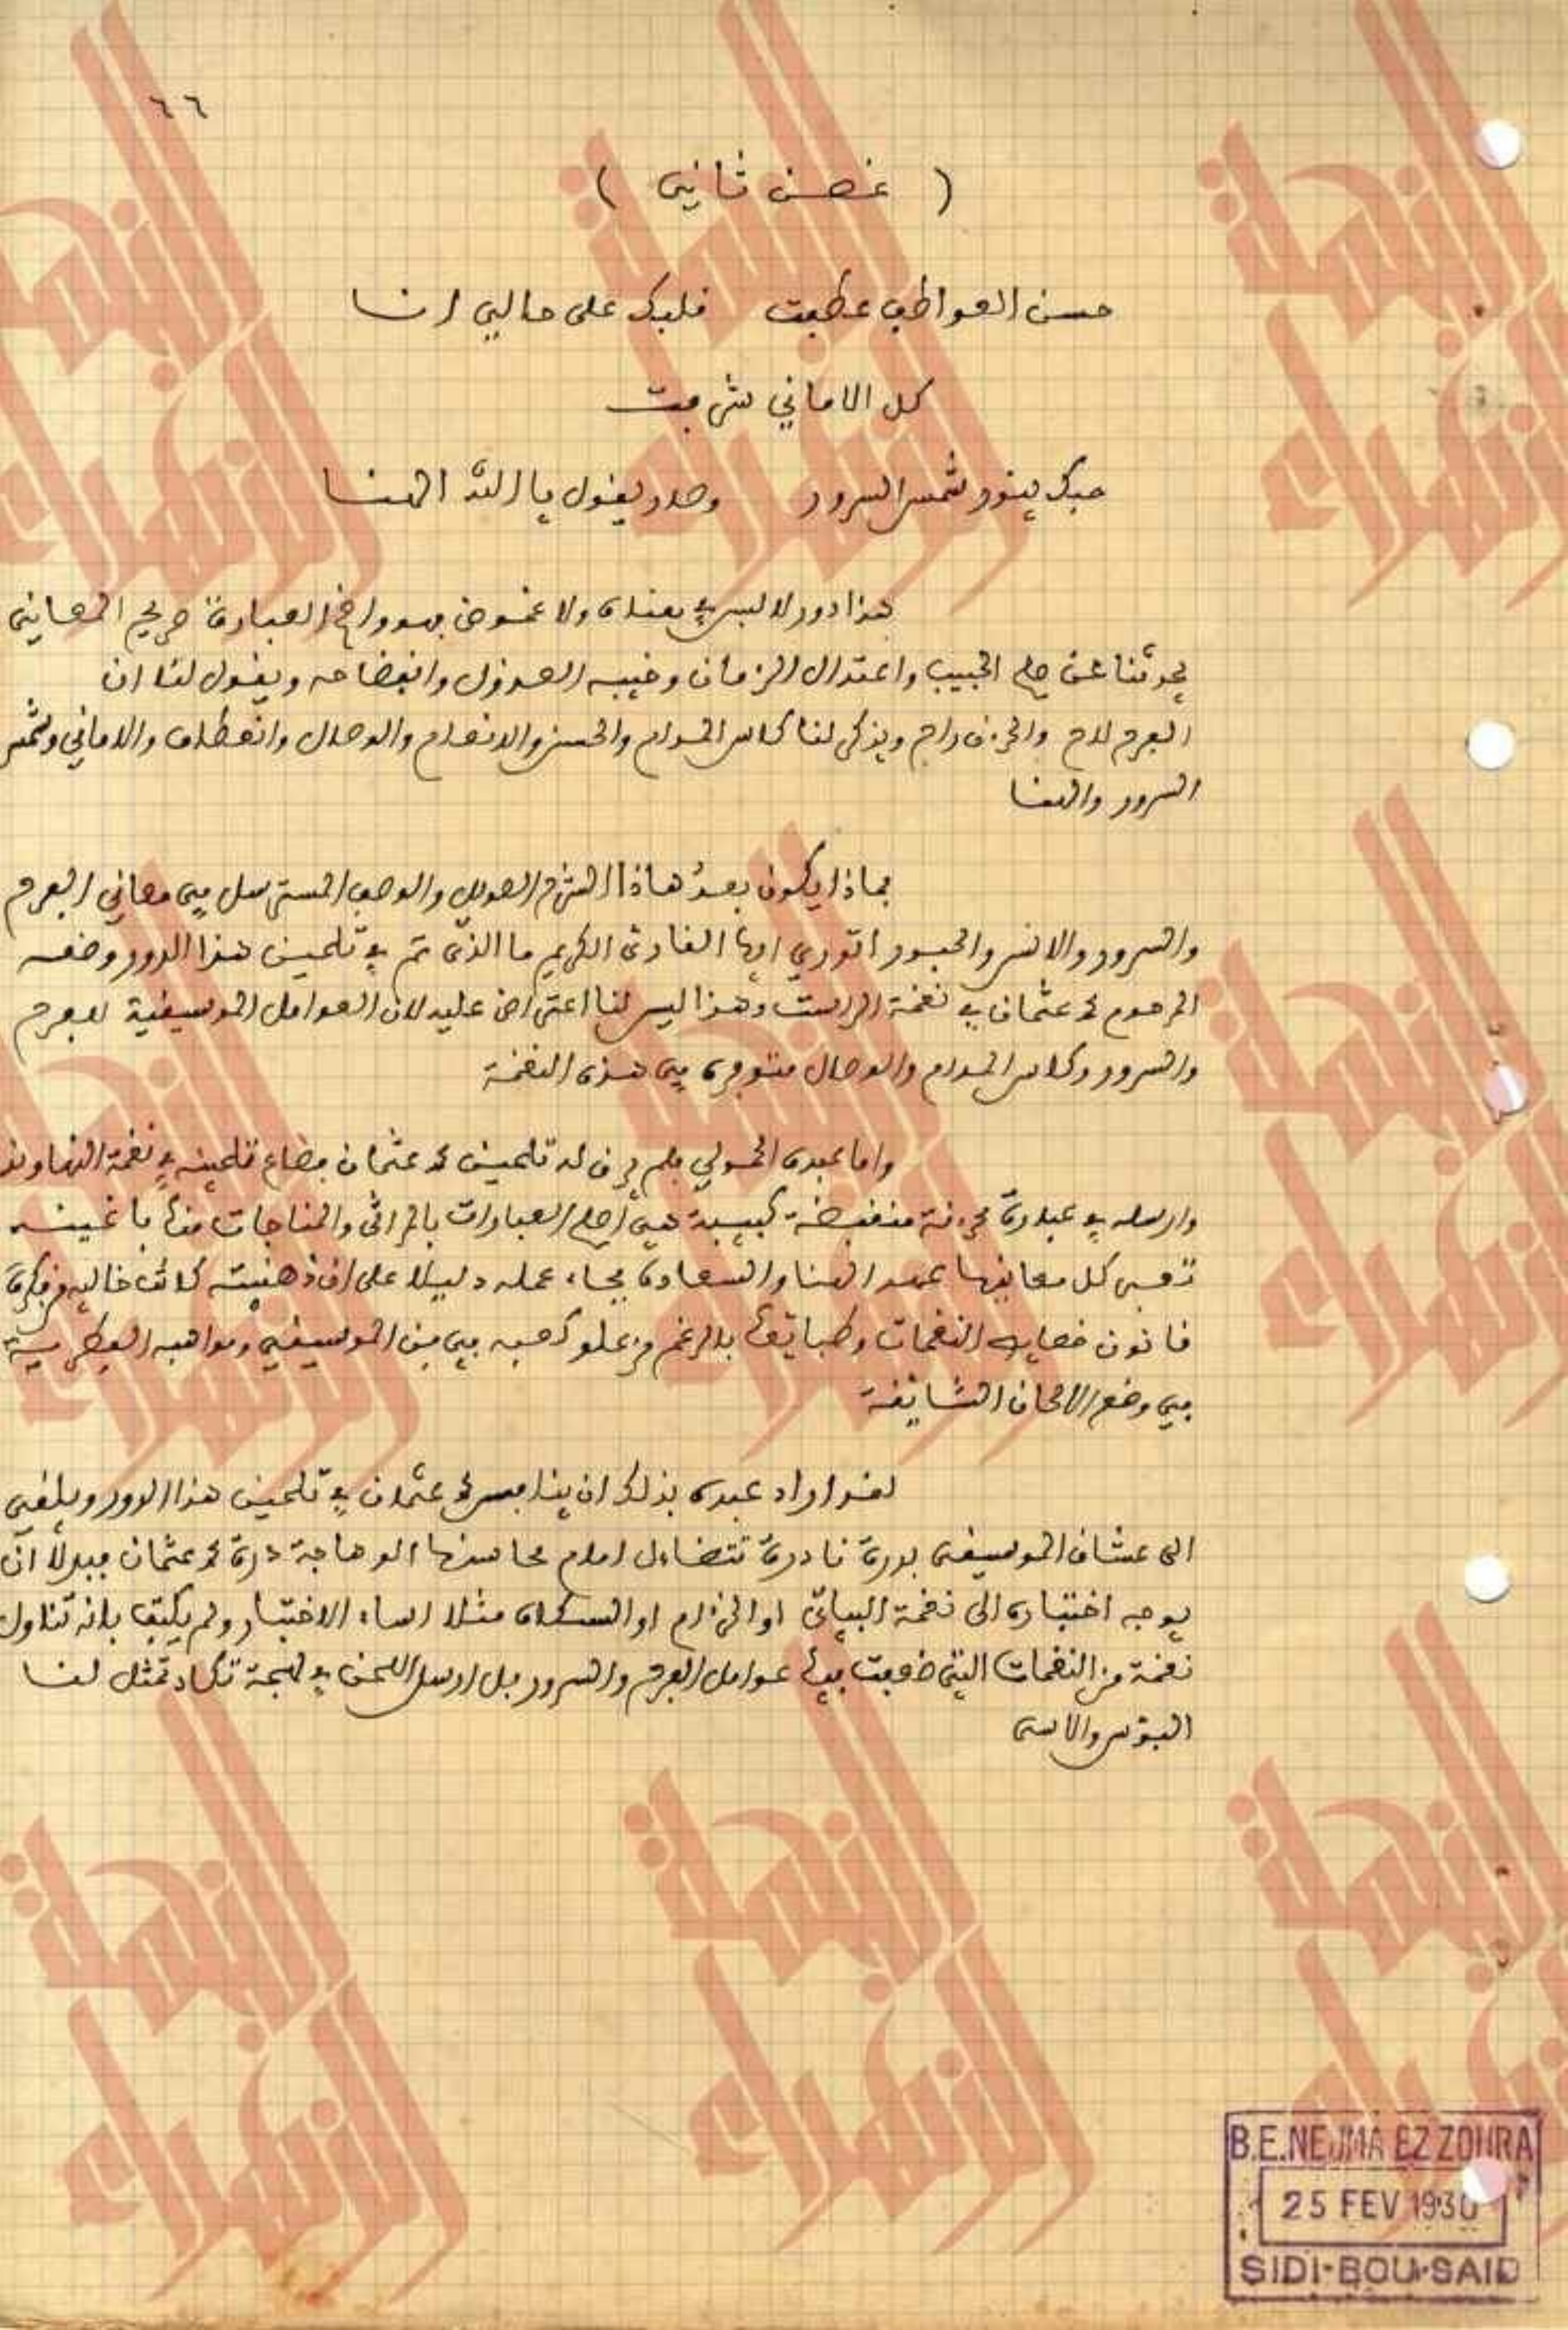 ٦٦
( غصن ثاني )
حسن العواطف عطفت قلبك على حالي انا
كل الاماني شرفت
حبك ينور شمس السرور وصلو يقول يا الله الهنا
هذا دور لا لبس في معناه ولا غموض فهو واضح العبارة صريح المعاني
يحدثنا عن صلح الحبيب واعتدال الزمان وخيبه العذول وانفضاحه ويقول لنا ان
الفرح لاح والحزن راح ويذكر لنا كاس المدام والحسن والانعام والوصال وانعطاف والاماني وشمس
السرور والهنا
فماذا يكون بعد هاذا الشرح الطويل والوصف المسترسل في معاني الفرح
والسرور والانس والحبور اتدري ايها القارئ الكريم ما الذي تم في تلحين هذا الدور وضعه
المرحوم محمد عثمان في نغمة الراست وهذا ليس لنا اعتراض عليه لان العوامل الموسيقية للفرح
والسرور وكاس المدام والوصال متوفره في هذه النغمة
واما عبده الحمولي فلم يرق له تلحين محمد عثمان فصاغ تلحينه في نغمة النهاوند
وارسله في عبارة محزنة منقبضة كئيبة هي أصلح العبارات بالمراثي والمناجات منها باغنيه
تعبر كل معانيها عن الهنا والسعادة فجاء عمله دليلا على ان ذهنيته كانت خاليه من فكرة
قانون خصايص النغمات وطبايعها بالرغم من علو كعبه في فن الموسيقى ومواهبه الفطرية
في وضع الالحان الشائقة
لقد اراد عبده بذلك ان ينافس محمد عثمان في تلحين هذا الدور ويلقي
الى عشاق الموسيقى بدرة نادرة تتضاءل امام محاسنها الوهاجة درة محمد عثمان فبدلا ان
يوجه اختياره الى نغمة البياتي او الحزام او السكاه مثلا اساء الاختيار ولم يكتف بانه تناول
نغمة من النغمات التي ضعفت فيها عوامل الفرح والسرور بل ارسل اللحن في لهجة تكاد تمثل لنا
البؤس والاسى
B.E.NEJMA EZ ZOHRA
25 FEV 1930
SIDI-BOU-SAID
النجمة الزهراء